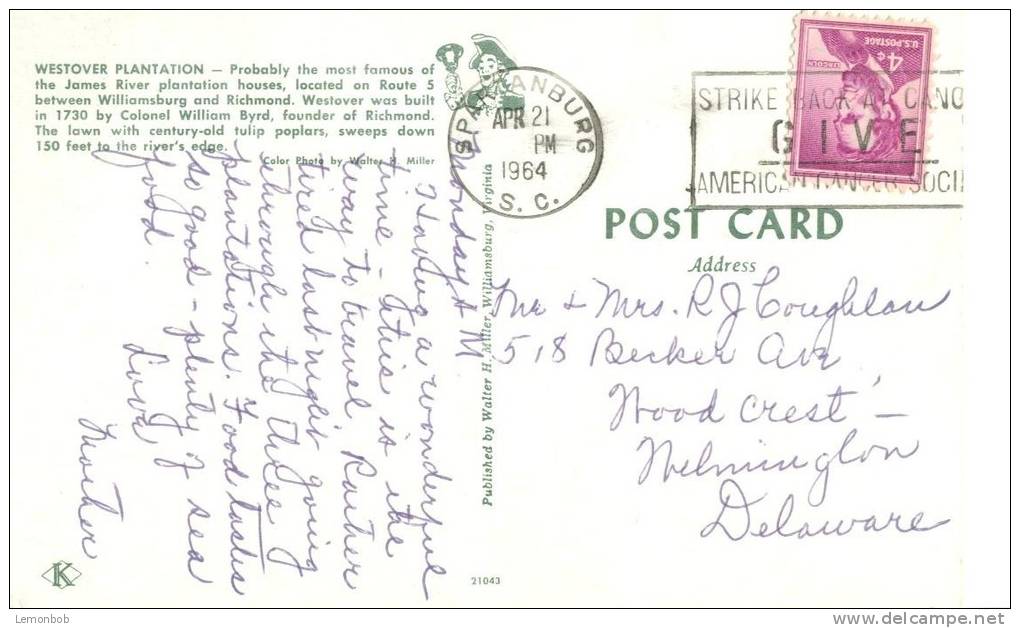 WESTOVER PLANTATION — Probably the most famous of
the James River plantation houses, located on Route 5
between Williamsburg and Richmond. Westover was built
in 1730 by Colonel William Byrd, founder of Richmond.
The lawn with century-old tulip poplars, sweeps down
150 feet to the river's edge.
Color Photo by Walter H. Miller
Monday A M
Having a wonderful
time - this is the
way to travel. Rather
tired last night going
through the three
plantations. Food tastes
so good - plenty of sea
food.
Love
Mother
K
Published by Walter H. Miller, Williamsburg, Virginia
21043
SPARTANBURG
APR 21
PM
1964
S. C.
STRIKE BACK AT CANC
GIVE
AMERICAN CANCER SOCI
U.S. POSTAGE
4¢
LINCOLN
POST CARD
Address
Mr + Mrs. R J Coughlan
518 Becker Ave
Wood Crest -
Wilmington
Delaware
Lemonbob
delcampe.net